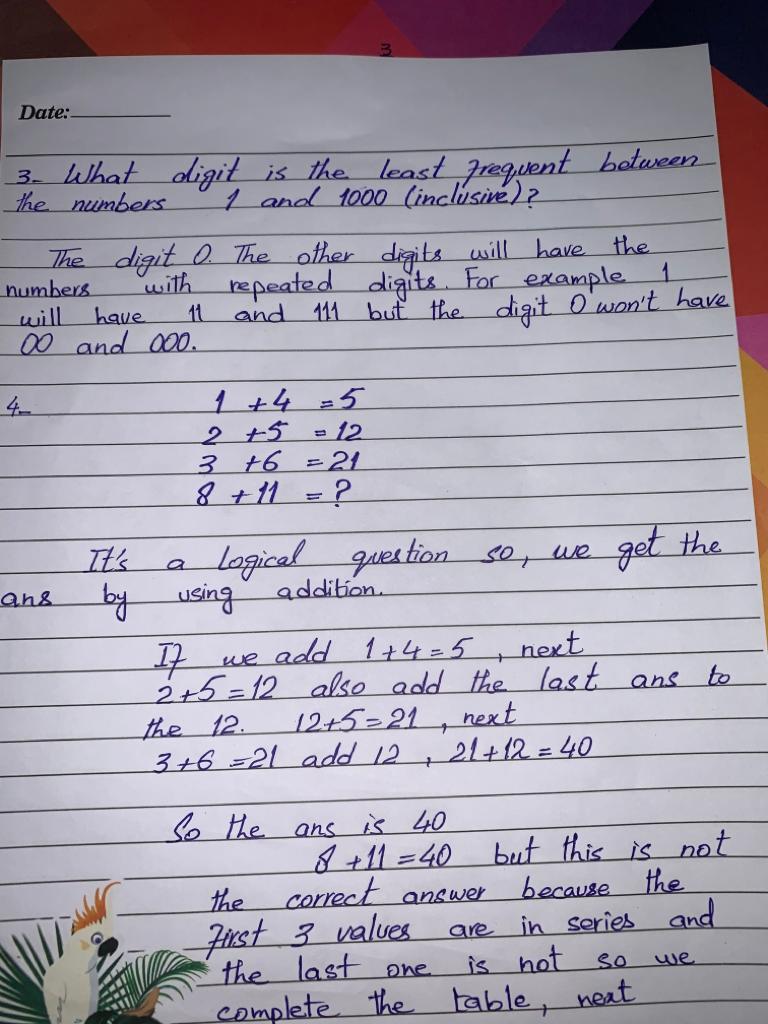 3
Date:
3- What digit is the least frequent between
the numbers 1 and 1000 (inclusive)?
The digit 0. The other digits will have the
numbers with repeated digits. For example 1
will have 11 and 111 but the digit 0 won't have
00 and 000.
4- 1 + 4 = 5
2 + 5 = 12
3 + 6 = 21
8 + 11 = ?
It's a logical question so, we get the
ans by using addition.
If we add 1+4=5 , next
2+5=12 also add the last ans to
the 12. 12+5=21 , next
3+6=21 add 12 , 21+12=40
So the ans is 40
8+11=40 but this is not
the correct answer because the
first 3 values are in series and
the last one is not so we
complete the table, next